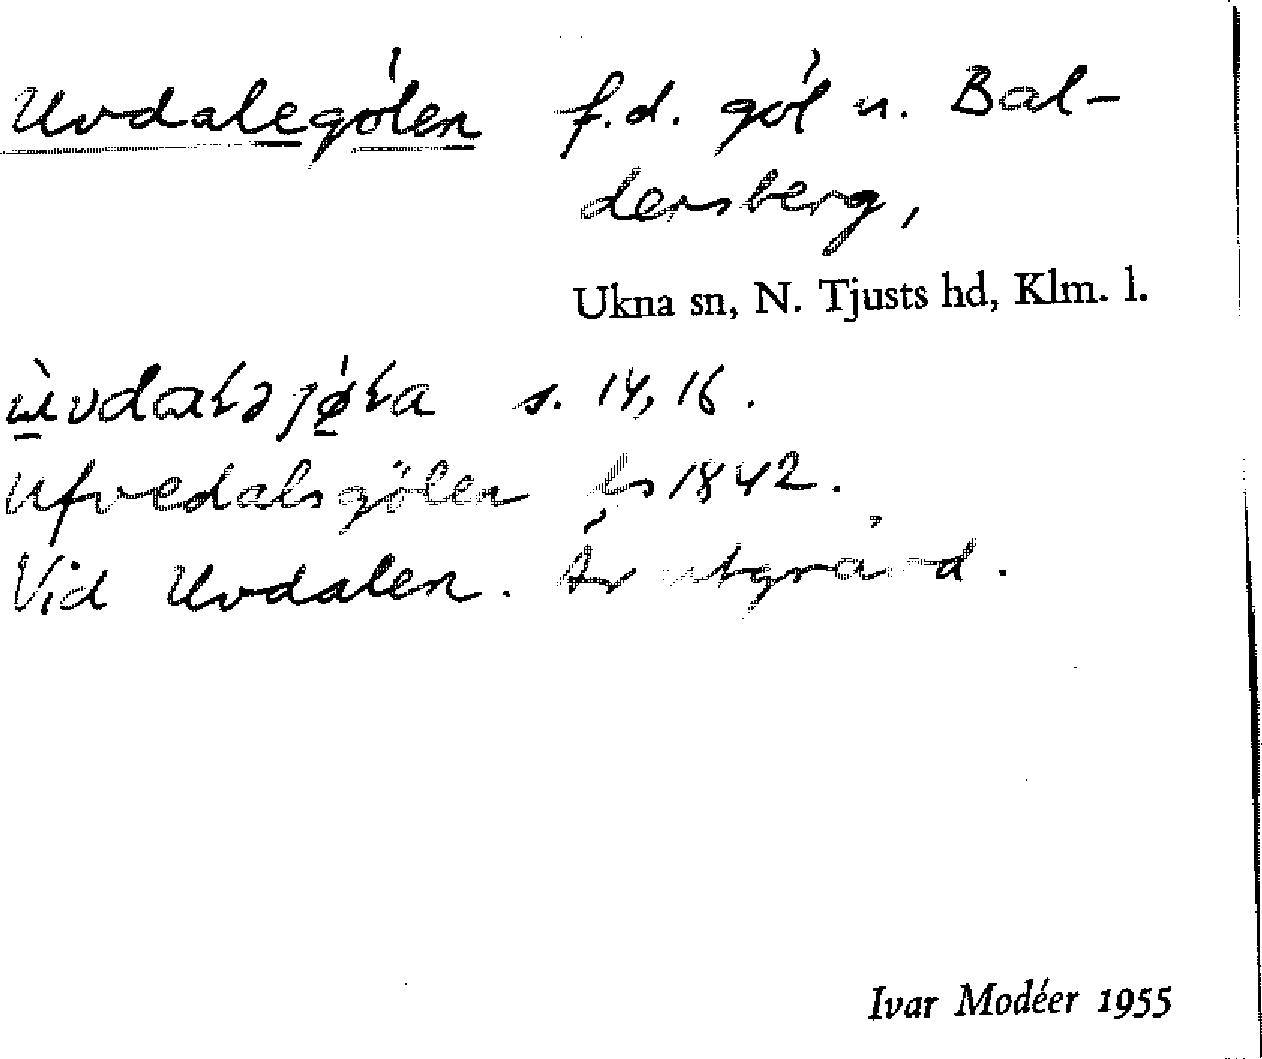 Uvdalegölen f.d. göl n. Bal-
dersberg,
Ukna sn, N. Tjusts hd, Klm. l.
s. 14, 16.
Ufvedalsgölen ls 1842.
Vid Uvdalen. Är utgrävd.
Ivar Modéer 1955